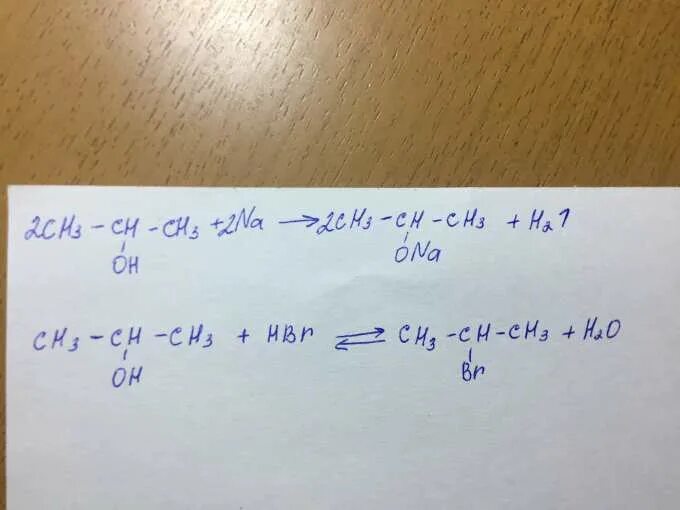 2CH3 – CH – CH3 + 2Na → 2CH3 – CH – CH3 + H2↑
OH ONa
CH3 – CH – CH3 + HBr ⇌ CH3 – CH – CH3 + H2O
OH Br